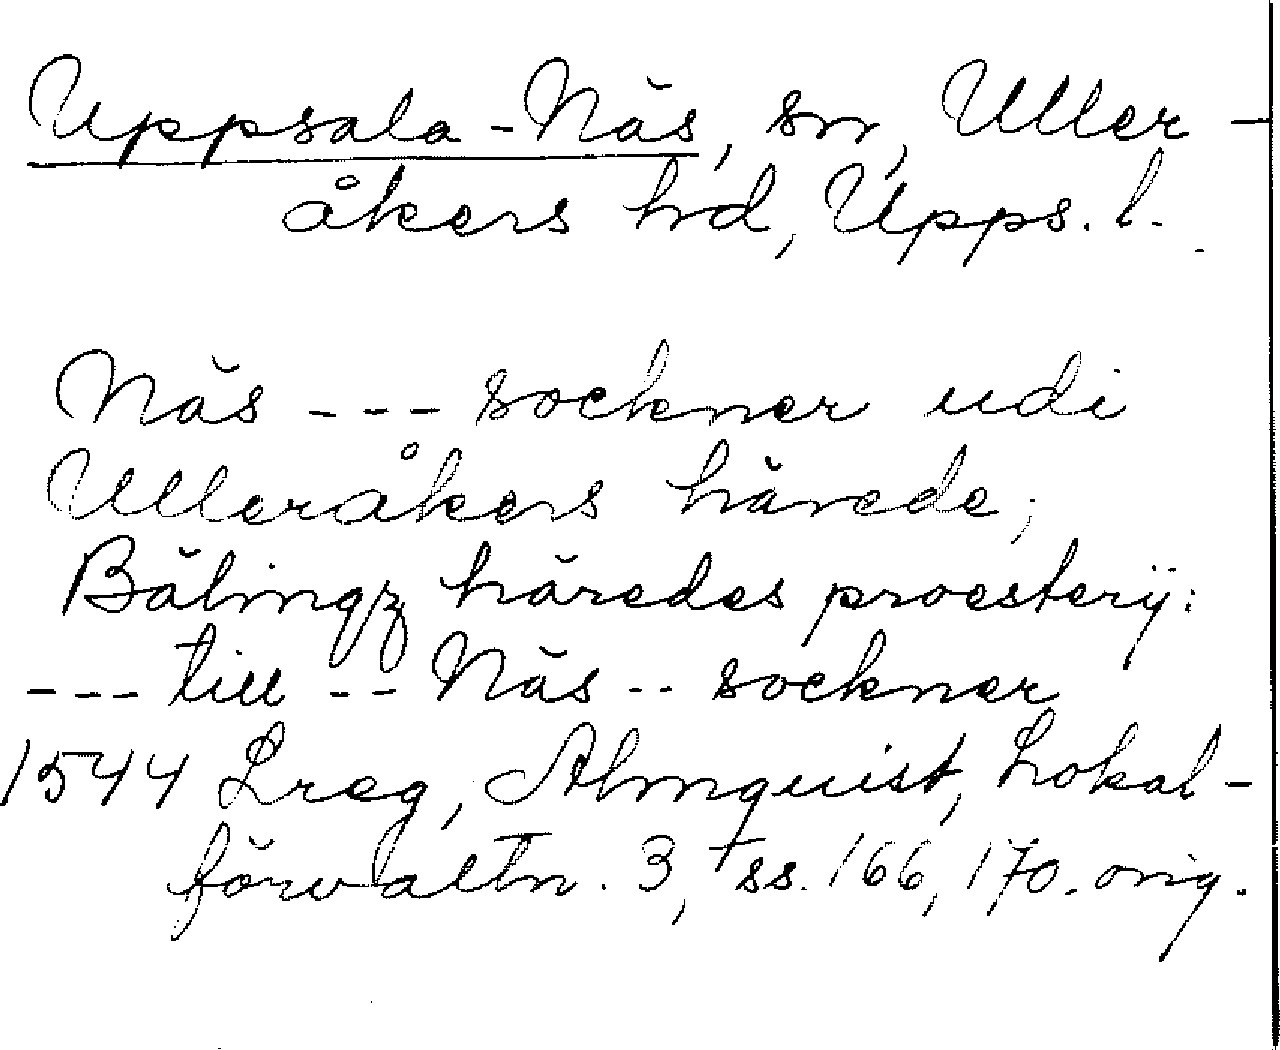 Uppsala-Näs, sn, Uller-
åkers hd, Upps. l.
Näs --- sockner udi
Ulleråkers härede;
Bälingz häredes proesterij:
--- till -- Näs -- sockner
1544 Lreg, Almquist, Lokal-
förvaltn. 3, ss. 166, 170. orig.